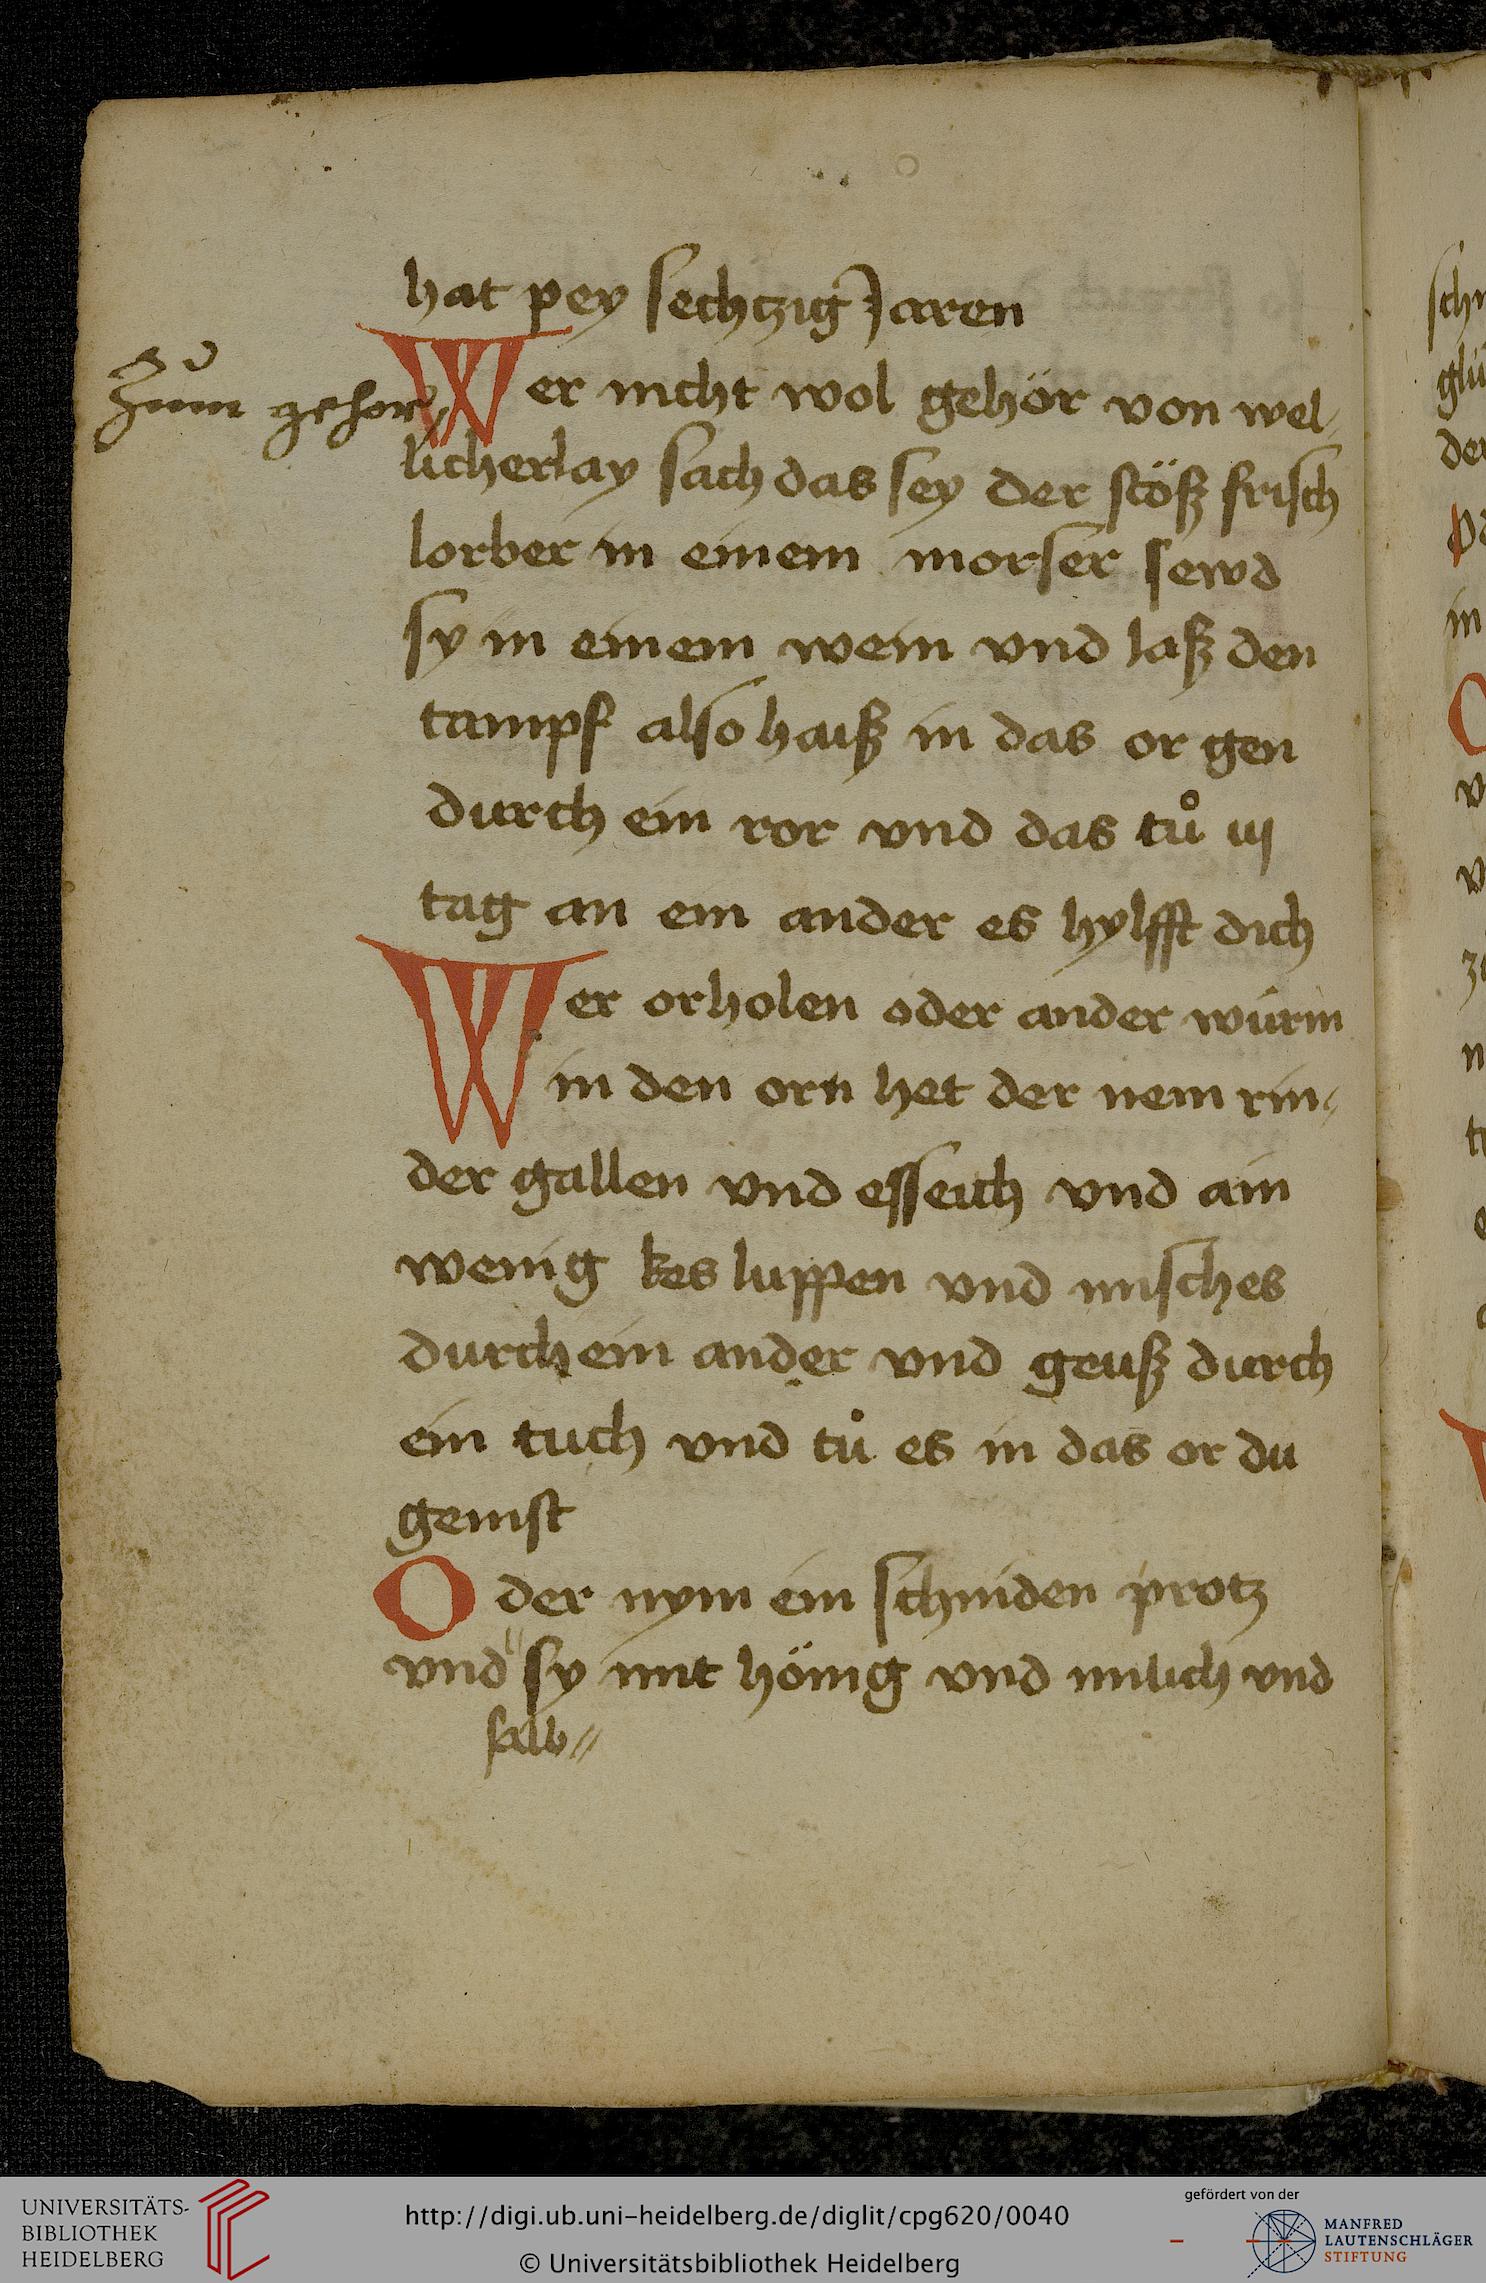 hat pey sechtzig Jaren
Zum gehor
Wer nicht wol gehör von wel-
licherlay sach das sey der stöß frisch
lorber in einem morser sewd
sy in einem wein vnd laß den
tampf also haiß in das or gen
durch ein ror vnd das tuͦ iij
tag an ein ander es hylfft dich
Wer orholen oder ander würm
in den orn het der nem rin-
der gallen vnd esseich vnd ain
wenig kes luppen vnd misch es
durch ein ander vnd geuß durch
ein tuch vnd tuͦ es in das or du
genist
Oder nym ein schmiden protz
vnd" sy mit hönig vnd milich vnd
salb"
UNIVERSITÄTS-
BIBLIOTHEK
HEIDELBERG
http://digi.ub.uni-heidelberg.de/diglit/cpg620/0040
© Universitätsbibliothek Heidelberg
gefördert von der
MANFRED
LAUTENSCHLÄGER
STIFTUNG